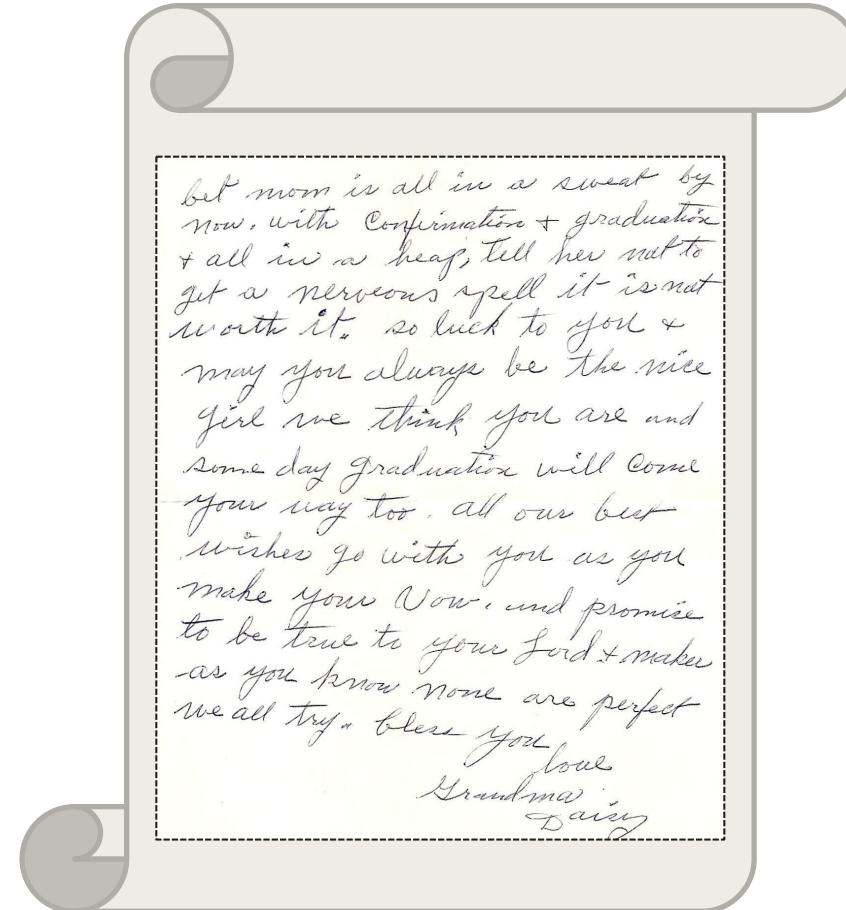 bet mom is all in a sweat by
now. with Confirmation + graduation
+ all in a heap, Tell her not to
get a nerveous spell it is not
worth it.. so luck to you +
may you always be the nice
girl we think you are and
some day graduation will Come
your way too. all our best
wishes go with you as you
make your Vow. and promise
to be true to your Lord + maker
as you know none are perfect
we all try.. bless you
love
Grandma
Daisy